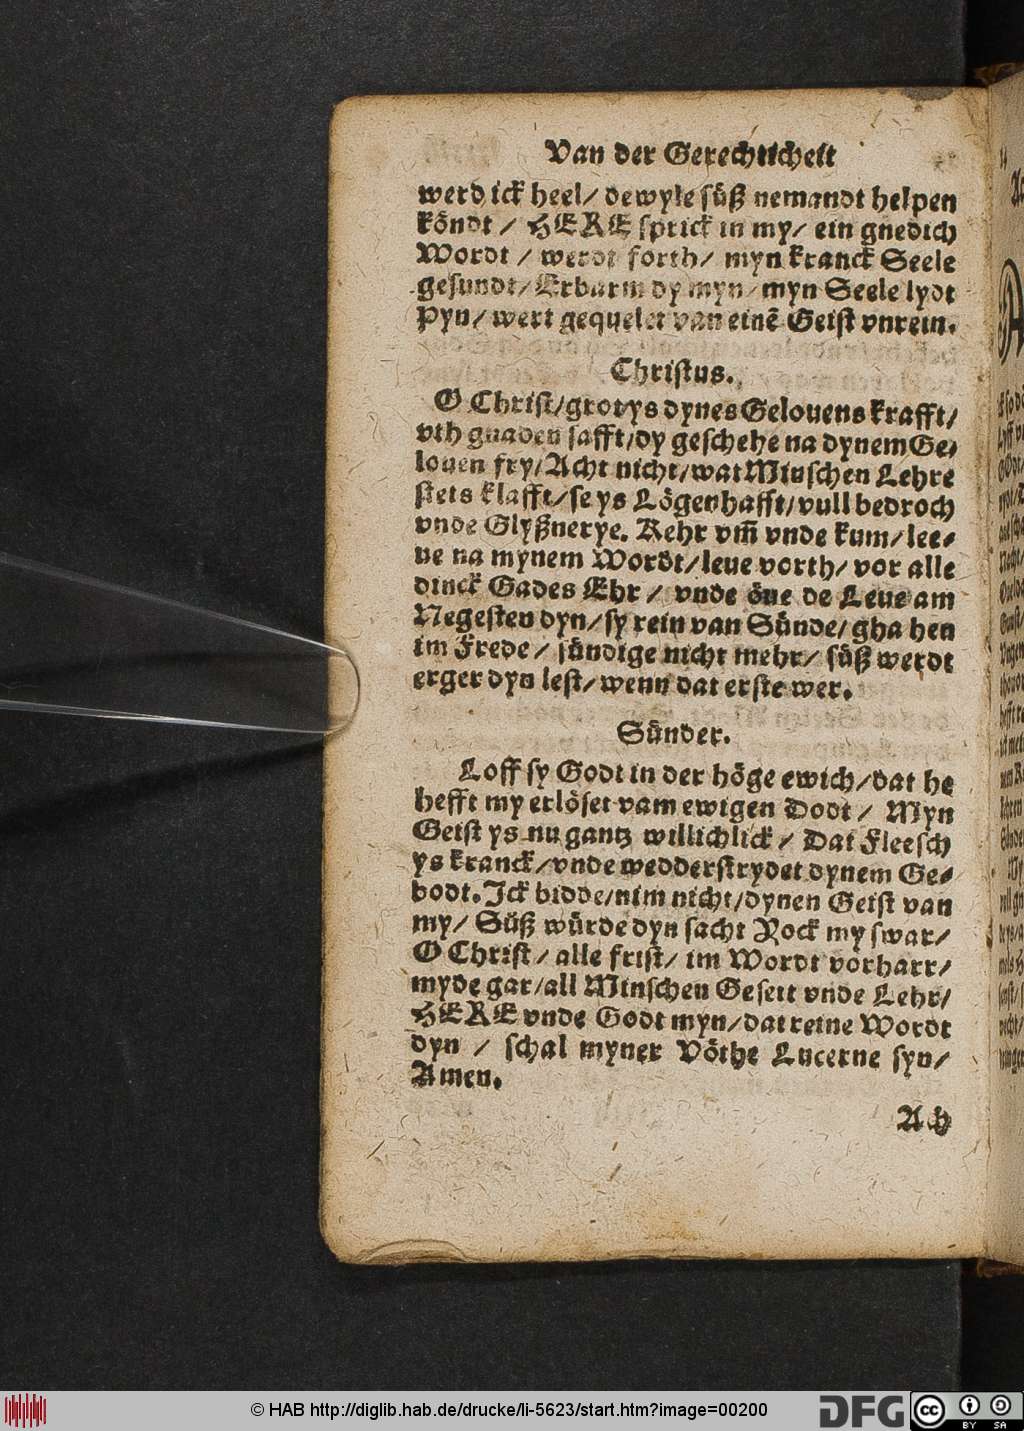 Van der Gerechticheit
werd ick heel/ dewyle süß nemandt helpen
köndt / HERE sprick in my/ ein gnedich
Wordt / werdt forth/ myn kranck Seele
gesundt/ Erbarm dy myn/ myn Seele lydt
Pyn/ wert gequelet van einē Geist vnrein.
Christus.
O Christ/grot ys dynes Gelouens krafft/
vth gnaden safft/dy geschehe na dynem Ge⸗
louen fry/Acht nicht/wat Minschen Lehre
stets klafft/se ys Lögenhafft/vull bedroch
vnde Glyßnerye. Kehr vm̄ vnde kum/lee⸗
ue na mynem Wordt/leue vorth/ vor alle
dinck Gades Ehr / vnde öue de Leue am
Negesten dyn/sy rein van Sünde/gha hen
im Frede / sündige nicht mehr/ süß werdt
erger dyn lest/wenn dat erste wer.
Sünder.
Loff sy Godt in der höge ewich/dat he
hefft my erlöset vam ewigen Dodt / Myn
Geist ys nu gantz willichlick / Dat Fleesch
ys kranck/vnde wedderstrydet dynem Ge⸗
bodt. Ick bidde/nim nicht/dynen Geist van
my/ Süß würde dyn sacht Jock my swar/
O Christ/ alle frist/ im Wordt vorharr/
myde gar/all Minschen Gesett vnde Lehr/
HERE vnde Godt myn/dat reine Wordt
dyn / schal myner Vöthe Lucerne syn/
Amen.
Ach
© HAB http://diglib.hab.de/drucke/li-5623/start.htm?image=00200
DFG
cc
BY SA